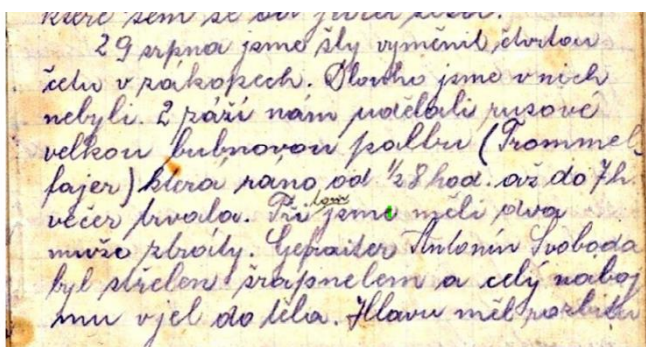 které sem se od
29 srpna jsme šly vyměnit čtvrtou
četu v zákopech. Dlouho jsme v nich
nebyli. 2 září nám udělali rusové
velkou bubnovou palbu (Trommel-
fajer) která ráno od ½8 hod. až do 7h.
večer trvala. Při tom jsme měli dva
muže ztráty. Gefraiter Antonín Svoboda
byl střelen šrapnelem a celý náboj
mu vjel do těla. Hlavu měl rozbitu